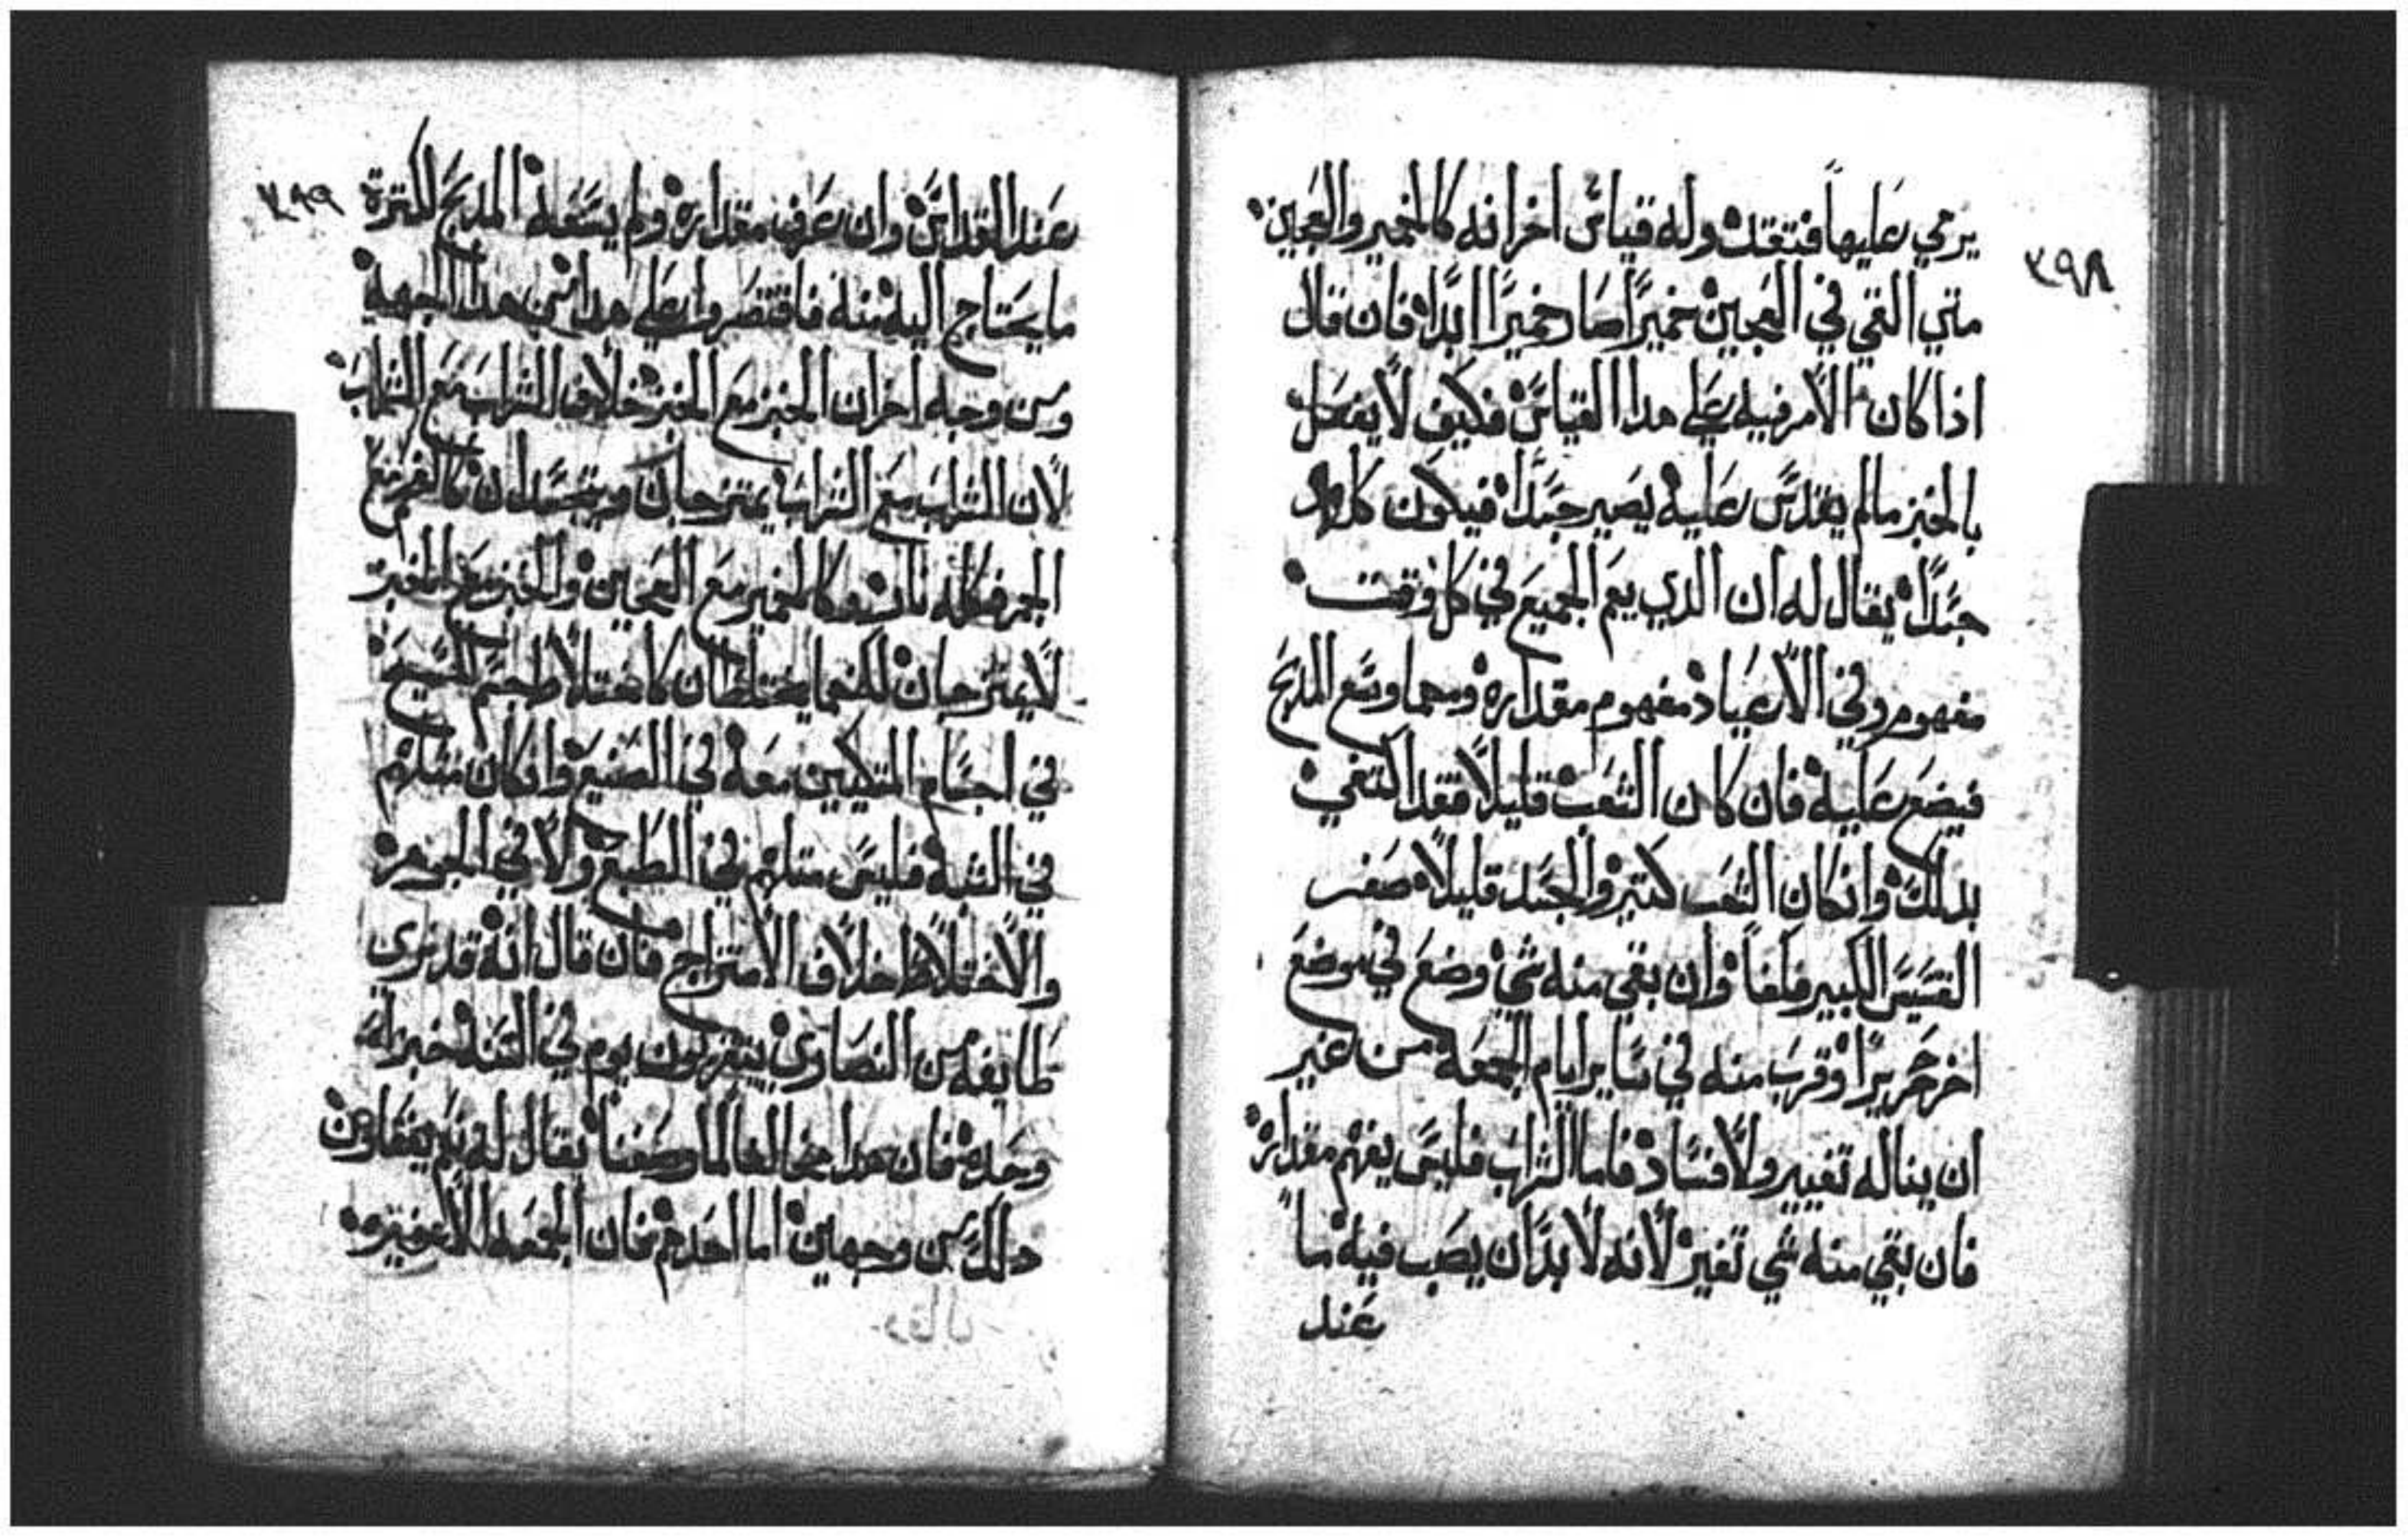 ٣٩٨
يرمي عليها فتتقد وله قياس اخر انه كالخمير والعجين
متي القي في العجين خميرًا صار خميرًا ابدًا فان قال
اذا كان الامر فيه علي هدا القياس فكيف لا يفعل
بالخبز مالم يقدس عليه يصير جسدًا فيكون كله
جسدًا يقال له ان الدي يعم الجميع في كل وقت
مفهوم وفي الاعياد مفهوم مقداره ومهما وسع المدبح
فيضع عليه فان كان الشعب قليلًا فقد اكتفي
بدلك وان كان الشعب كتير والجسد قليلًا صغر
القسيس الكبير فلفا وان بقي منه شي وضع في موضع
اخر حريرًا وقرب منه في ساير ايام الجمعه من غير
ان يناله تغيير ولا فساد فاما الشراب فليس يفهم مقداره
فان بقي منه شي تغير لانه لا بد ان يصب فيه ما
عند
٣٩٩
عند القداس وان عرف مقداره ولم يسعه المدبح لكترة
ما يحتاج اليه منه فاقتصروا علي هدا من هدا الجهة
ومن وجه اخر ان الخبز مع الخبز خلاف الشراب مع الشراب
لان الشراب مع الشراب يمتزجان ويتحدان كالجمر مع
الجمر فكله نار وكالخمير مع العجين والخبز مع الخبز
لا يمتزجان لكنهما يختلطان كاختلاط جسم المسيح
في اجسام المتكيين معه في الصنيع وان كان متلهم
في الشبه فليس متلهم في الطبع ولا في الجوهر
والاختلاط خلاف الامتزاج فان قال انه قد نري
طايفه من النصاري يتقربون يوم في السنه خبز انه
وحده فان هدا مخالفا لما وصفنا يقال له بلم يفعلون
دلك من وجهين اما احدهم فان الجمعه الاعفيره
وقال